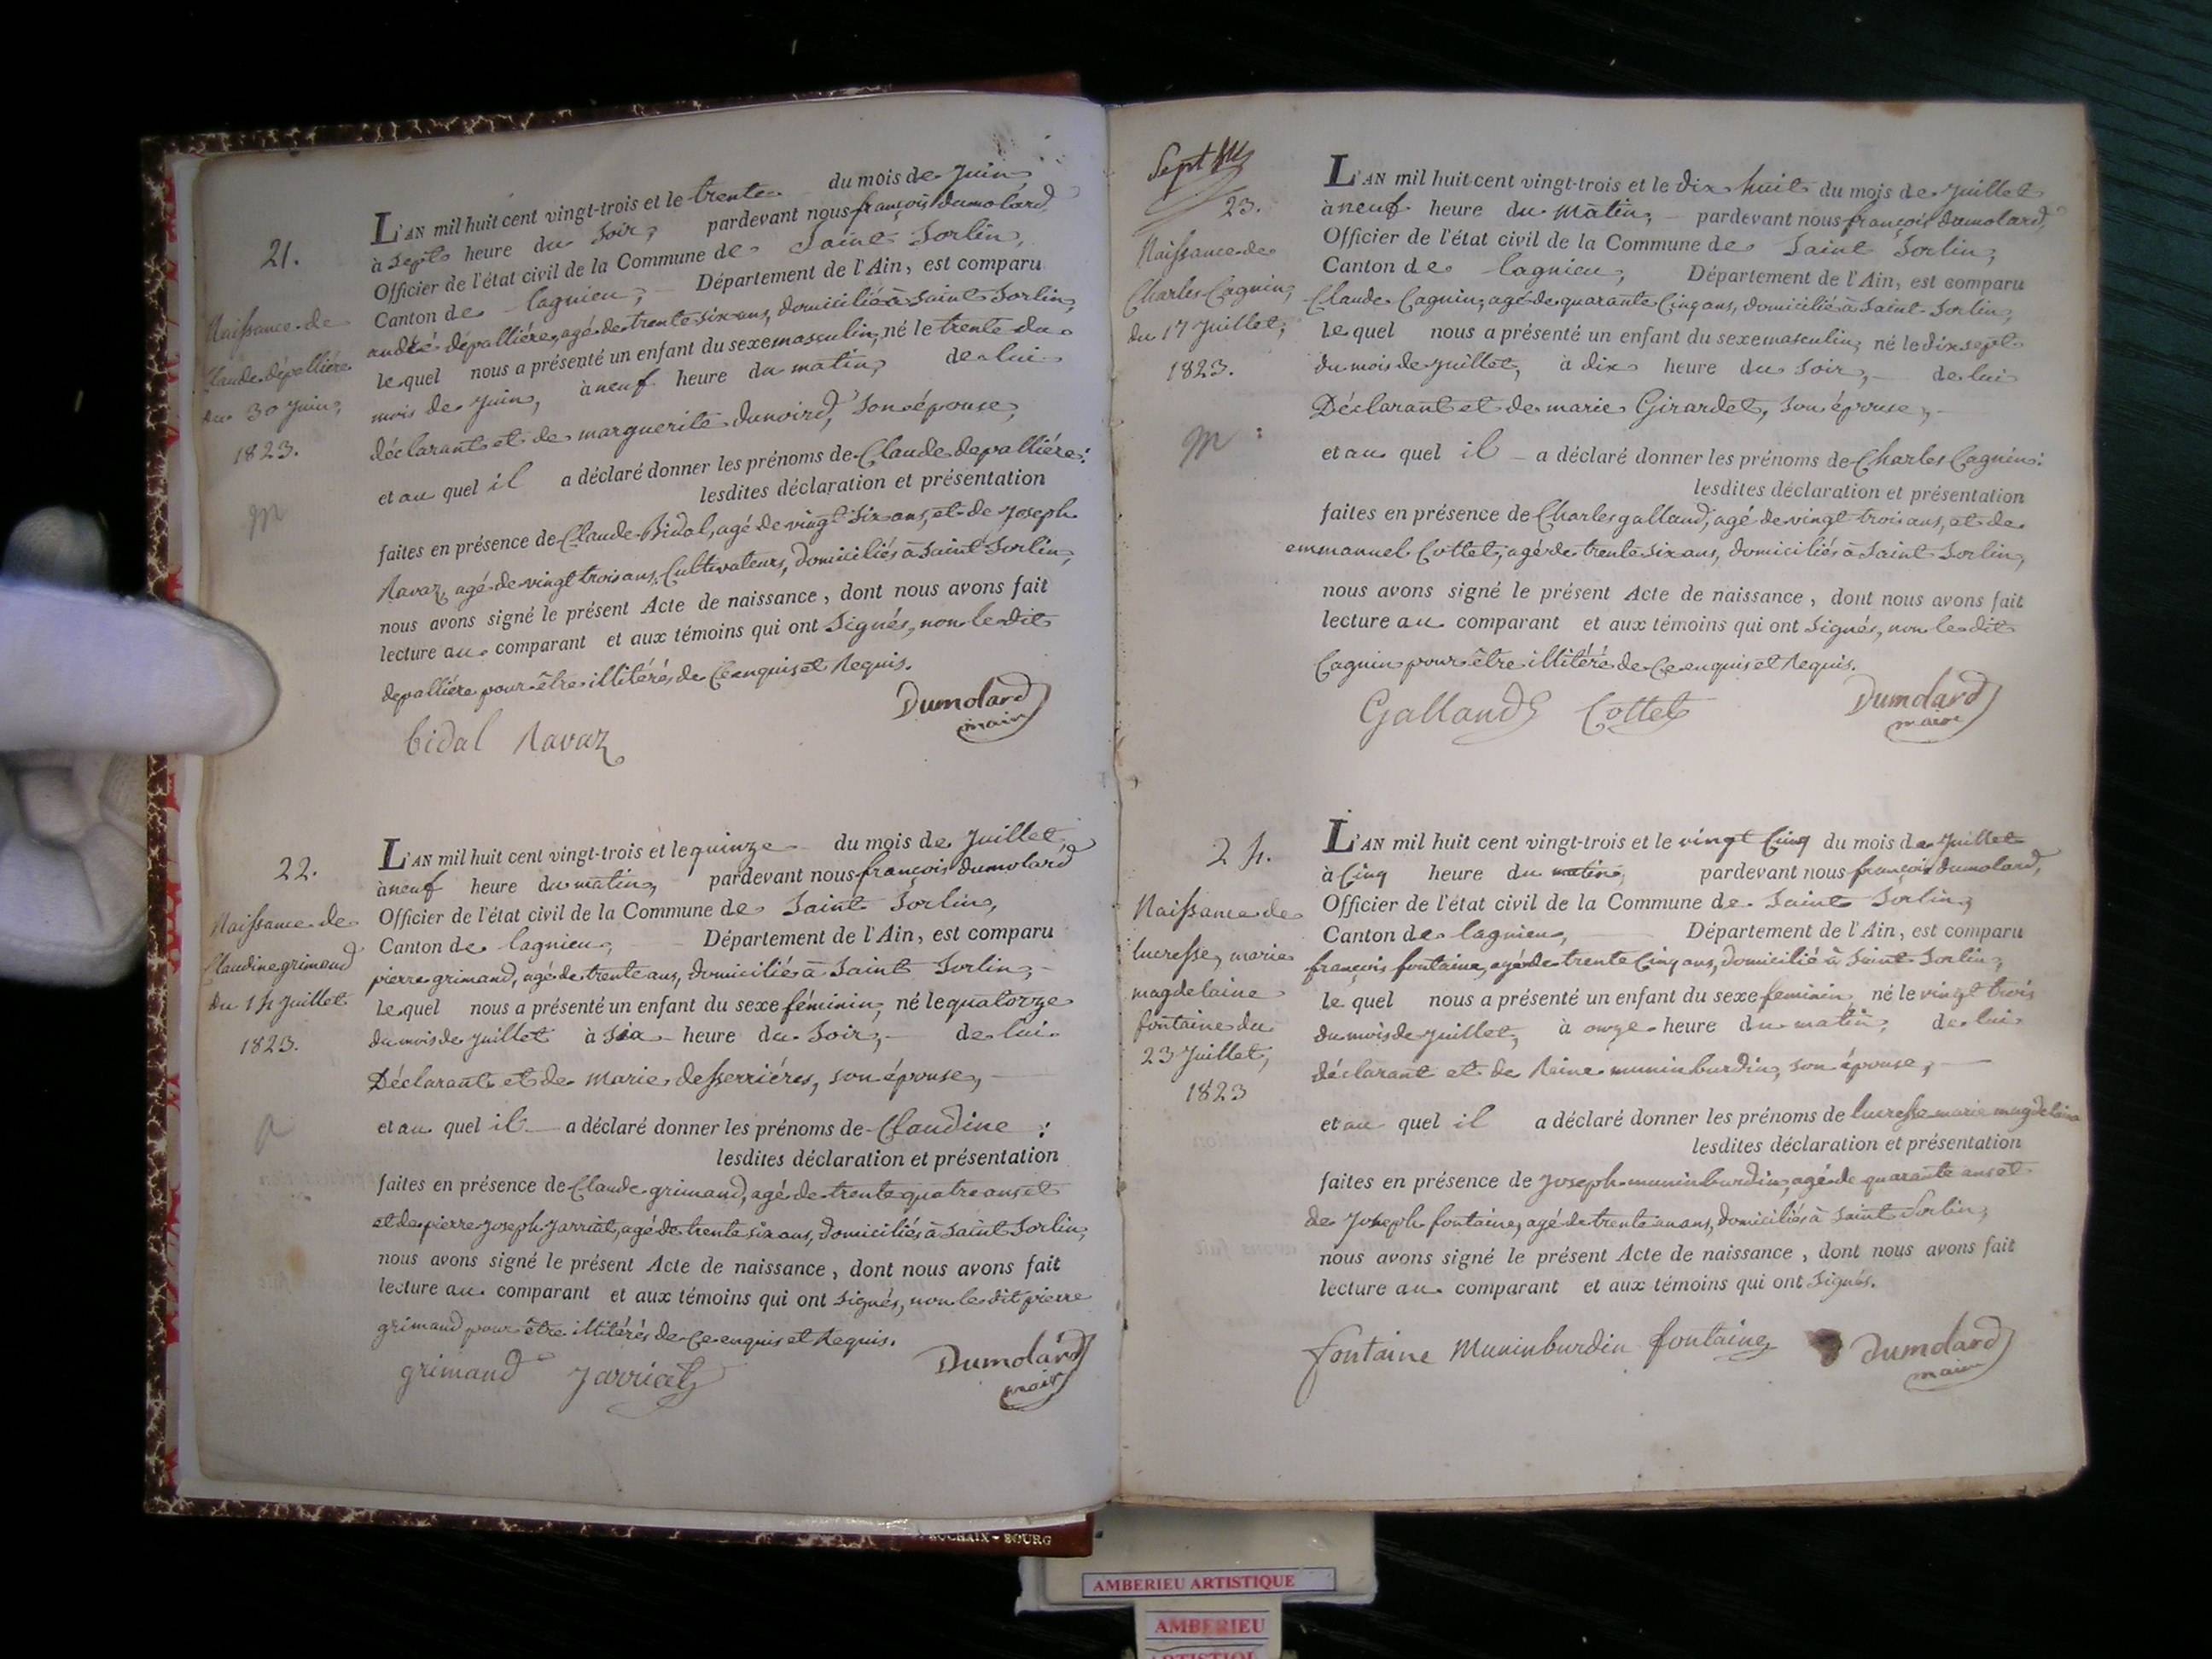 21.
Naissance de
Claude dépalliére
du 30 Juin,
1823.
m
L'AN mil huit cent vingt-trois et le trente du mois de Juin,
à Sept heure du Soir, pardevant nous françois dumolard,
Officier de l'état civil de la Commune de Saint Sorlin,
Canton de lagnieu, Département de l'Ain, est comparu
andré dépalliére, agé de trente six ans, domicilié à Saint Sorlin,
le quel nous a présenté un enfant du sexe masculin, né le trente du
mois de Juin, à neuf heure du matin, de lui
déclarant et de marguerite dunoird, son épouse,
et au quel il a déclaré donner les prénoms de Claude depalliére:
lesdites déclaration et présentation
faites en présence de Claude Bidal, agé de vingt Six ans, et de Joseph
Ravaz, agé de vingt trois ans, Cultivateurs, domiciliés à Saint Sorlin,
nous avons signé le présent Acte de naissance, dont nous avons fait
lecture au comparant et aux témoins qui ont Signés, non le dit
depalliére pour être illitérés de Ce enquis et Requis.
bidal Ravaz
Dumolard
maire
22.
Naissance de
Claudine grimand
du 14 Juillet
1823.
L'AN mil huit cent vingt-trois et le quinze du mois de Juillet,
à neuf heure du matin, pardevant nous françois dumolard
Officier de l'état civil de la Commune de Saint Sorlin,
Canton de lagnieu, Département de l'Ain, est comparu
pierre grimand, agé de trente ans, domicilié à Saint Sorlin,
le quel nous a présenté un enfant du sexe féminin, né le quatorze
du mois de Juillet à Six heure du Soir, de lui
Déclarant et de Marie desserriéres, son épouse,
et au quel il a déclaré donner les prénoms de Claudine :
lesdites déclaration et présentation
faites en présence de Claude grimand, agé de trente quatre ans et
et de pierre Joseph Jarriat, agé de trente six ans, domiciliés à Saint Sorlin,
nous avons signé le présent Acte de naissance, dont nous avons fait
lecture au comparant et aux témoins qui ont Signés, non le dit pierre
grimand pour être illitérés de Ce enquis et Requis.
grimand Jarriat
Dumolard
maire
23.
Naissance de
Charles Cagnin,
du 17 Juillet,
1823.
m
L'AN mil huit cent vingt-trois et le dix huit du mois de Juillet
à neuf heure du Matin, pardevant nous françois dumolard,
Officier de l'état civil de la Commune de Saint Sorlin,
Canton de lagnieu, Département de l'Ain, est comparu
Claude Cagnin, agé de quarante Cinq ans, domicilié à Saint Sorlin,
le quel nous a présenté un enfant du sexe masculin, né le dix sept
du mois de Juillet, à dix heure du Soir, de lui
Déclarant et de marie Girardet, son épouse,
et au quel il a déclaré donner les prénoms de Charles Cagnin:
lesdites déclaration et présentation
faites en présence de Charles galland, agé de vingt trois ans, et de
emmanuel Cottet, agé de trente six ans, domiciliés à Saint Sorlin,
nous avons signé le présent Acte de naissance, dont nous avons fait
lecture au comparant et aux témoins qui ont Signés, non le dit
Cagnin pour être illitéré de Ce enquis et Requis.
Galland Cottet
Dumolard
maire
24.
Naissance de
lucresse, marie
magdelaine
fontaine du
23 Juillet,
1823
L'AN mil huit cent vingt-trois et le vingt Cinq du mois de Juillet
à Cinq heure du matin, pardevant nous françois dumolard,
Officier de l'état civil de la Commune de Saint Sorlin,
Canton de lagnieu, Département de l'Ain, est comparu
françois fontaine, agé de trente Cinq ans, domicilié à Saint Sorlin,
le quel nous a présenté un enfant du sexe feminin, né le vingt trois
du mois de Juillet, à onze heure du matin, de lui
déclarant et de Reine muninburdin, son épouse,
et au quel il a déclaré donner les prénoms de lucresse marie magdelaine
lesdites déclaration et présentation
faites en présence de Joseph muninburdin, agé de quarante ans et
de Joseph fontaine, agé de trente un ans, domiciliés à Saint Sorlin,
nous avons signé le présent Acte de naissance, dont nous avons fait
lecture au comparant et aux témoins qui ont Signés.
fontaine Muninburdin fontaine
Dumolard
maire
BOURG
AMBERIEU ARTISTIQUE
AMBERIEU